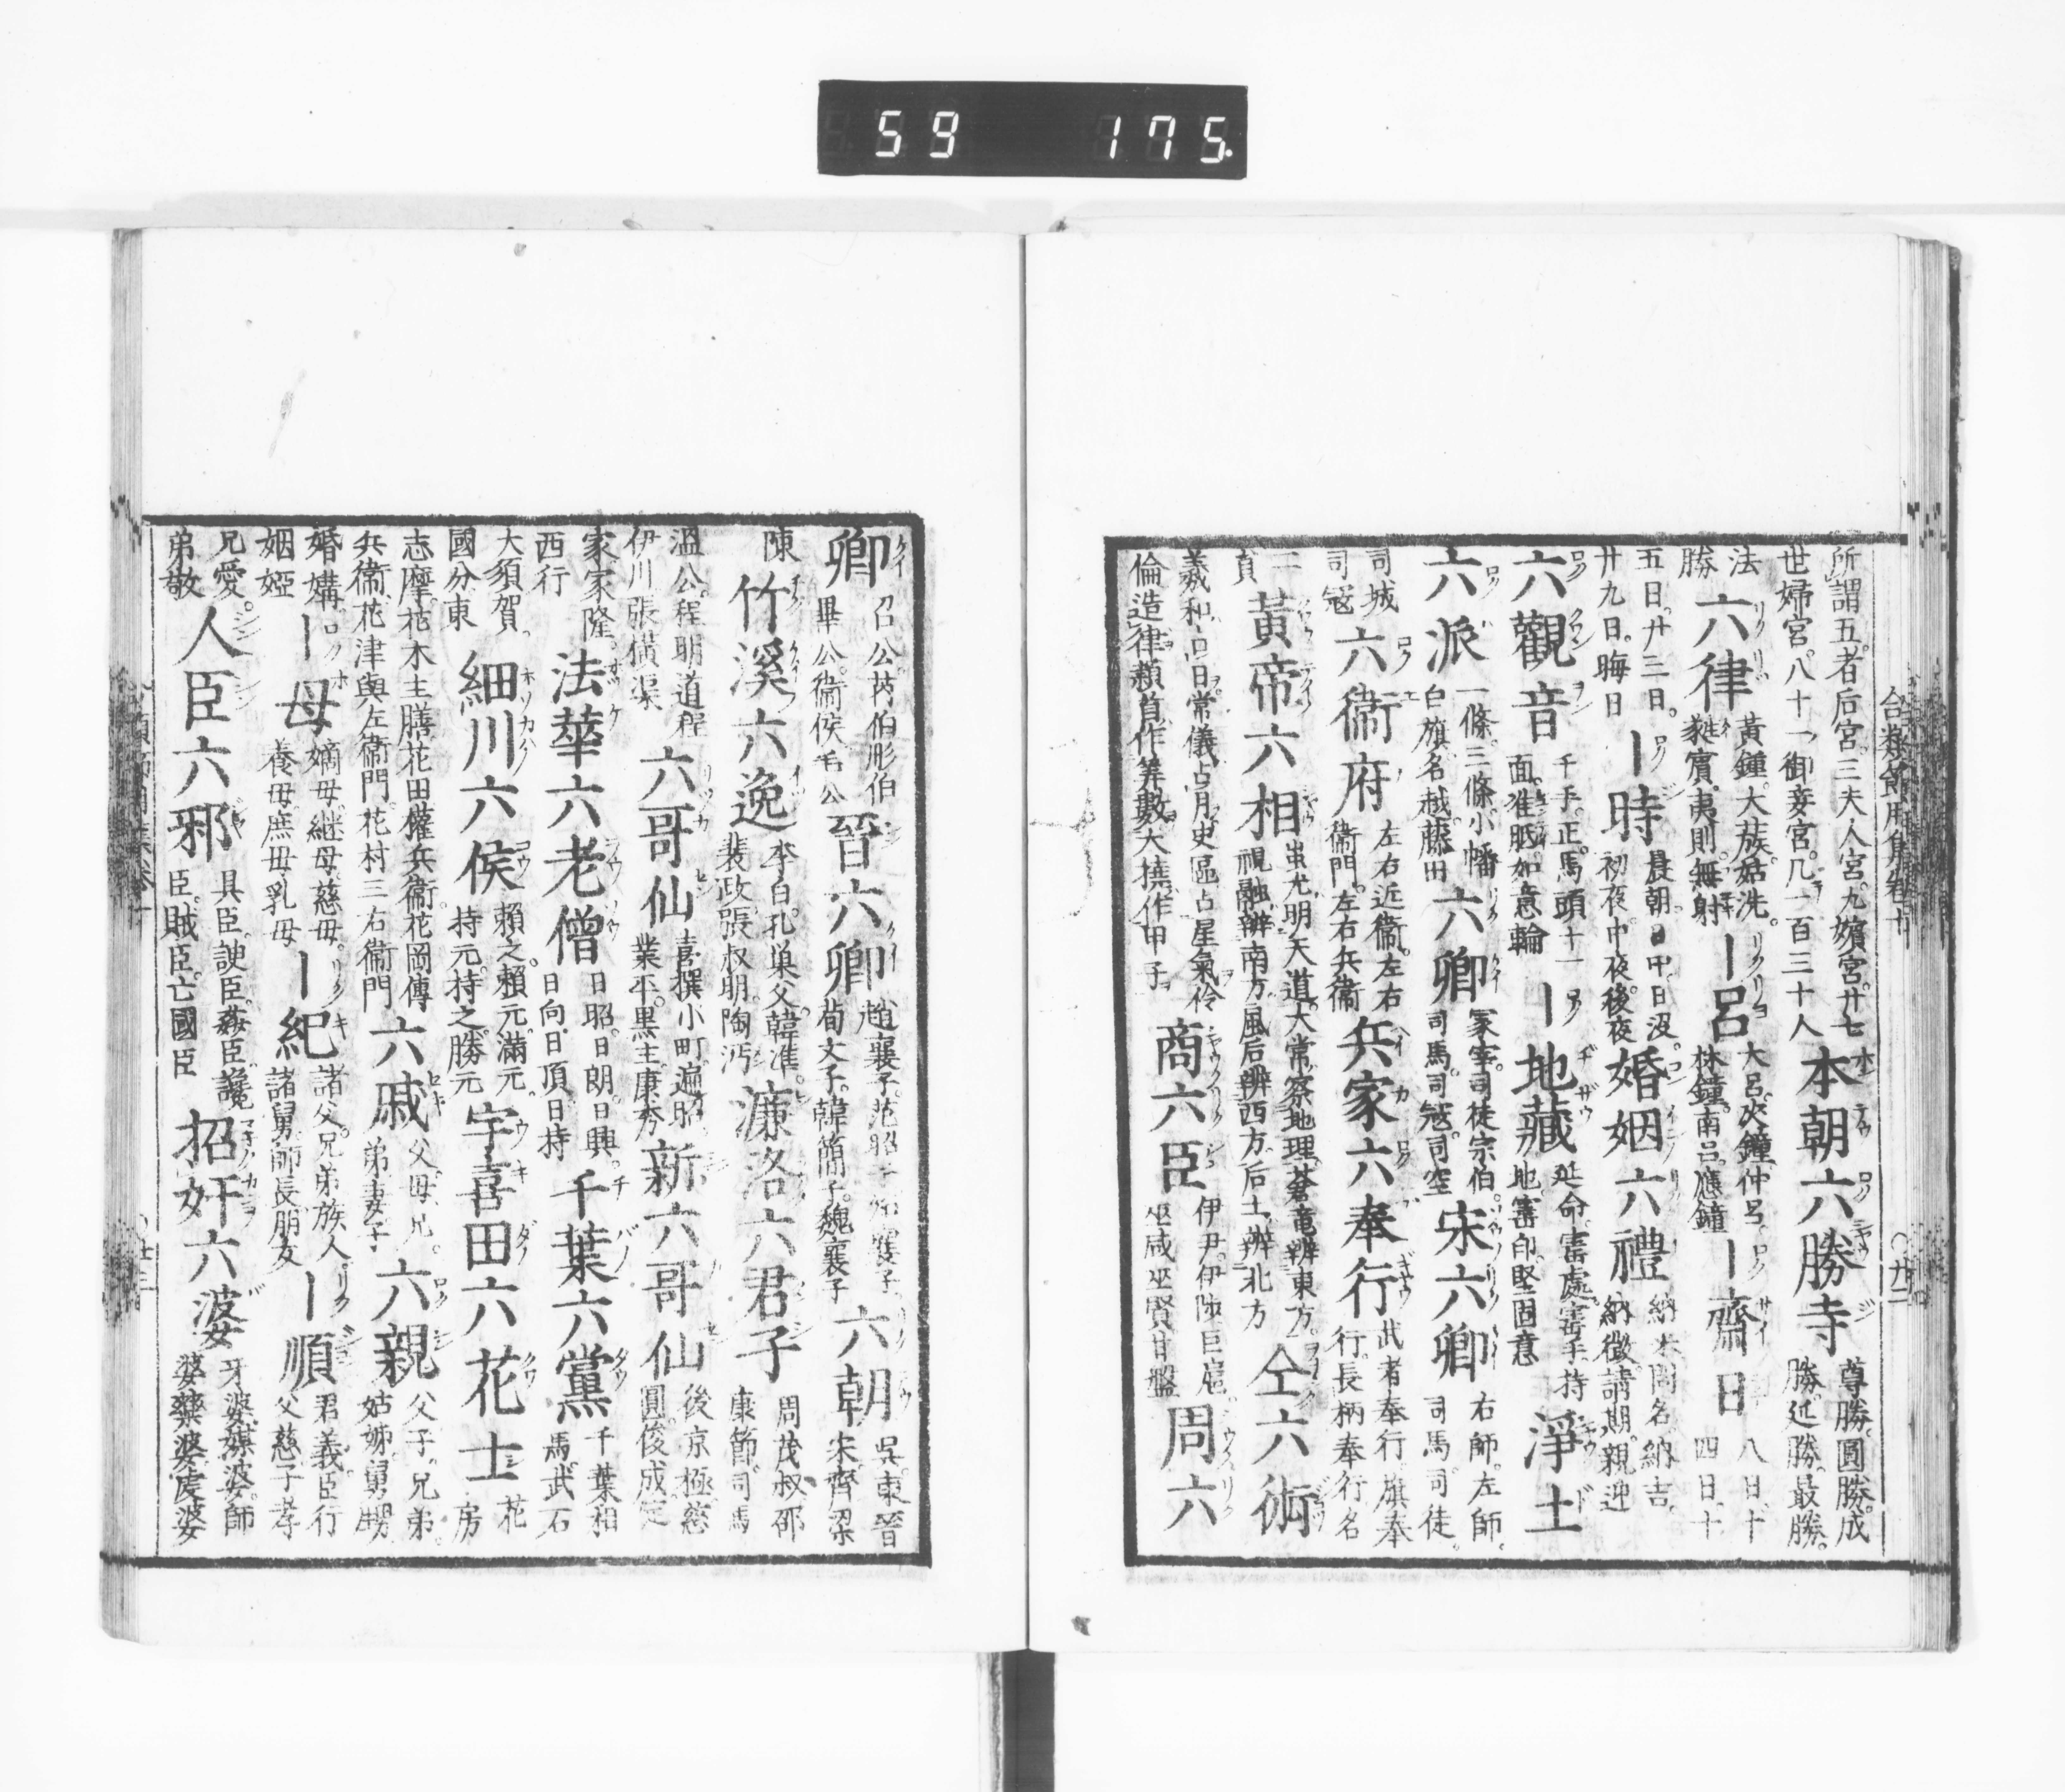 59 175.
合類節用集卷十
所謂五者后宮三夫人宮九嬪宮廿七
世婦宮八十一御妾宮凡一百三十人
本朝六勝寺
尊勝圓勝成
勝延勝最勝
法
勝
六律
黃鍾大簇姑洗
蕤賓夷則無射
〡呂
大呂夾鐘仲呂
林鐘南呂應鐘
〡齋日
八日十
四日十
五日廿三日
廿九日晦日
〡時
晨朝日中日没
初夜中夜後夜
婚姻六禮
納采問名納吉
納徵請期親迎
六觀音
千手正馬頭十一
面准胝如意輪
〡地藏
延命寶處寶手持
地寶印堅固意
淨土
六派
一條三條小幡
白旗名越藤田
六卿
冢宰司徒宗伯
司馬司寇司空
宋六卿
右師左師
司馬司徒
司城
司寇
六衞府
左右近衞左右
衞門左右兵衞
兵家六奉行
武者奉行旗奉
行長柄奉行名
黃帝六相
蚩尤明天道大常察地理蒼竜辨東方
視融辨南方風后辨西方后土辨北方
仝六術
羲和占日常儀占月史區占星氣伶
倫造律隸首作筭數大撓作甲子
商六臣
伊尹伊陟臣扈
巫咸巫賢甘盤
周六
卿
召公芮伯彤伯
畢公衞侯毛公
晉六卿
趙襄子范昭子知襄子
荀文子韓簡子魏襄子
六朝
吳東晉
宋齊梁
陳
竹溪六逸
李白孔巢父韓準
裴政張叔明陶沔
濂洛六君子
周茂叔邵
康節司馬
溫公程明道程
伊川張橫渠
六哥仙
喜撰小町遍昭
業平黒主康秀
新六哥仙
後京極慈
圓俊成定
家家隆
西行
法華六老僧
日昭日朗日興
日向日頂日持
千葉六黨
千葉相
馬武石
大須賀
國分東
細川六侯
賴之賴元滿元
持元持之勝元
宇喜田六花士
花
房
志摩花木主膳花田權兵衞花岡傳
兵衞花津與左衞門花村三右衞門
六戚
父母兄
弟妻子
六親
父子兄弟
姑姊舅甥
婚媾
姻婭
〡母
嫡母継母慈母
養母庶母乳母
〡紀
諸父兄弟族人
諸舅師長朋友
〡順
君義臣行
父慈子孝
兄愛
弟敬
人臣六邪
具臣諛臣姦臣讒
臣賊臣亡國臣
招奸六婆
牙婆媒婆師
婆藥婆虔婆